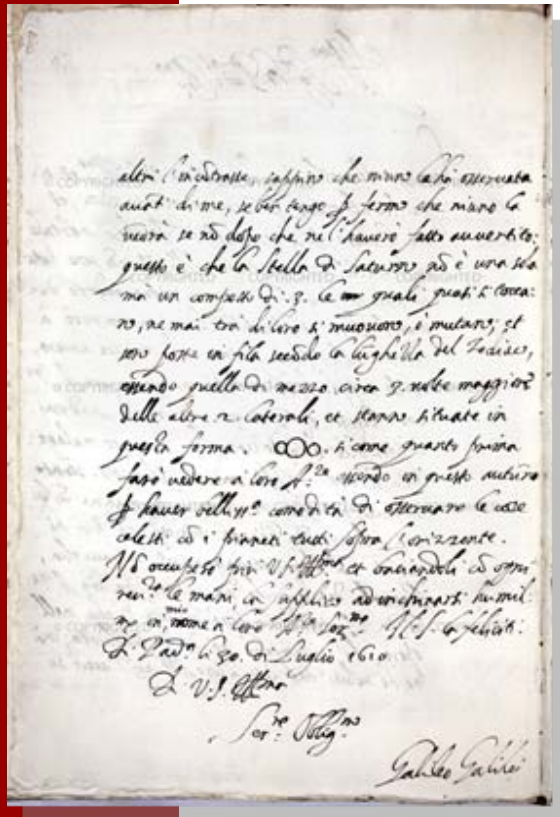 altri l'incōtrasse, sappino che niuno la ha osservata
avāti di me, se ben tengo ꝑ fermo che niuno la
vedrà se nō dopo che ne l'haverò fatto avvertito;
questo è che la Stella di Saturno nō è una sola
ma un composto di .3. le quali quasi si tocca-
no, ne mai trà di loro si muovono, ò mutano; et
son poste in fila secōdo la lūghezza del Zodiaco,
essendo quella di mezzo circa 3. volte maggiore
delle altre 2 laterali, et stanno situate in
questa forma. oOo. si come quanto prima
farò vedere à loro A.ze essendo in questo autūno
ꝑ haver bellissº. comodità di osservare le cose
celesti cō i pianeti tutti sopra l'orizzonte.
Nō occuperò più V.S. Illma et baciandoli cō ogni
revza le mani, la supplico ad inchinarsi humil-
te in mio nome à loro Ser.me N.S. la feliciti.
Di Pad.a li 30. di Luglio 1610
Di V.S. Illma
Ser.re Obblig.mo
Galileo Galilei